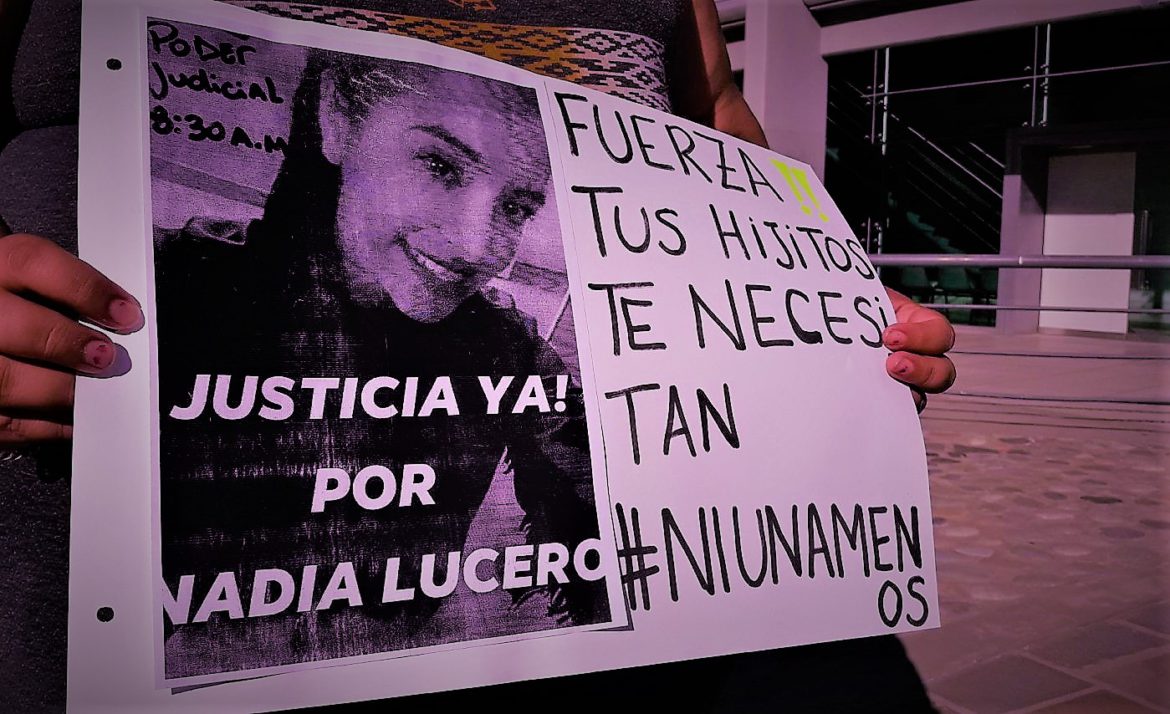 PODER
JUDICIAL
8:30 A.M
JUSTICIA YA!
POR
NADIA LUCERO
FUERZA!!
TUS HIJITOS
TE NECESI
TAN
#NIUNAMEN
OS